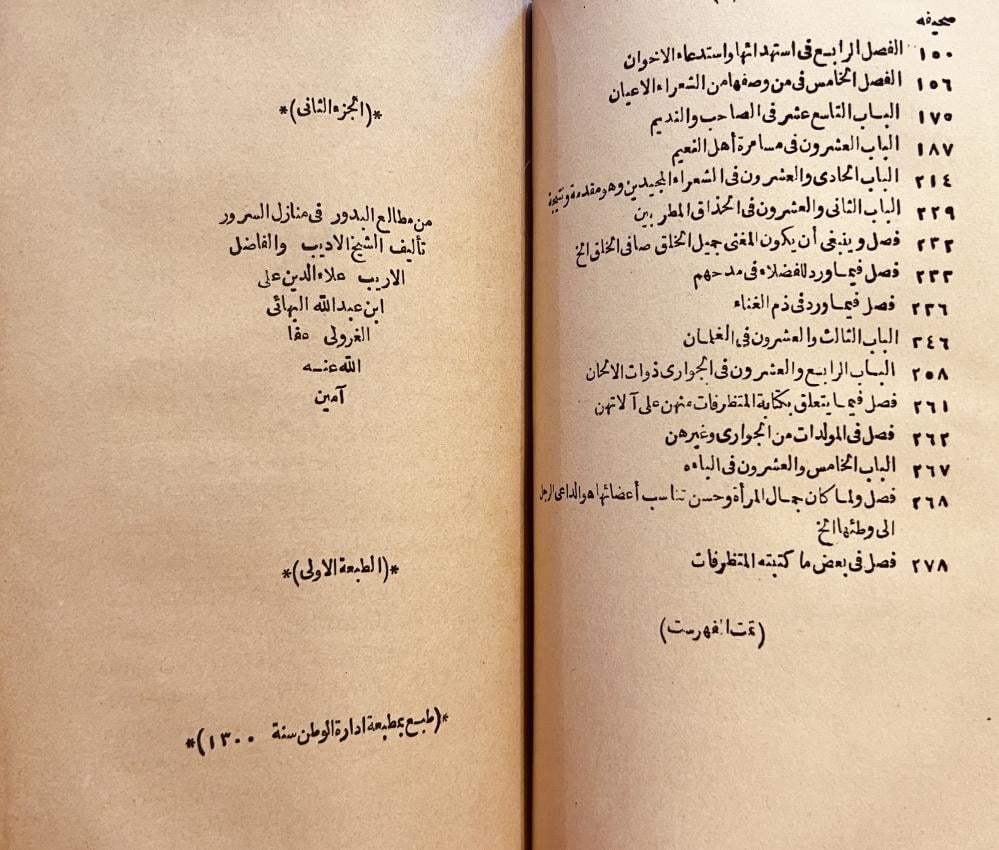 صحيفه
١٥٠ الفصل الرابع فى استهدائها واستدعاء الاخوان
١٥٦ الفصل الخامس فى من وصفها من الشعراء الاعيان
١٧٥ الباب التاسع عشر فى الصاحب والنديم
١٨٧ الباب العشرون فى مسامرة أهل النعيم
٢١٤ الباب الحادى والعشرون فى الشعراء المجيدين وهو مقدمة ونتيجة
٢٢٩ الباب الثانى والعشرون فى الحذاق المطربين
٢٣٢ فصل وينبغى أن يكون المغنى جميل الخلق صافى الخلق الخ
٢٣٣ فصل فيما ورد للفضلاء فى مدحهم
٢٣٦ فصل فيما ورد فى ذم الغناء
٢٤٦ الباب الثالث والعشرون فى الغلمان
٢٥٨ الباب الرابع والعشرون فى الجوارى ذوات الالحان
٢٦١ فصل فيما يتعلق بكتابة المتظرفات منهن على آلاتهن
٢٦٢ فصل فى المولدات من الجوارى وغيرهن
٢٦٧ الباب الخامس والعشرون فى الباءه
٢٦٨ فصل ولما كان جمال المرأة وحسن تناسب أعضائها هو الداعى الرجل
الى وطئها الخ
٢٧٨ فصل فى بعض ما كتبته المتظرفات
(تمت الفهرست)
*(الجزء الثانى)*
من مطالع البدور فى منازل السرور
تأليف الشيخ الاديب والفاضل
الاريب علاء الدين على
ابن عبد الله البهائى
الغزولى عفا
الله عنه
آمين
*(الطبعة الاولى)*
*(طبع بمطبعة ادارة الوطن سنة ١٣٠٠)*